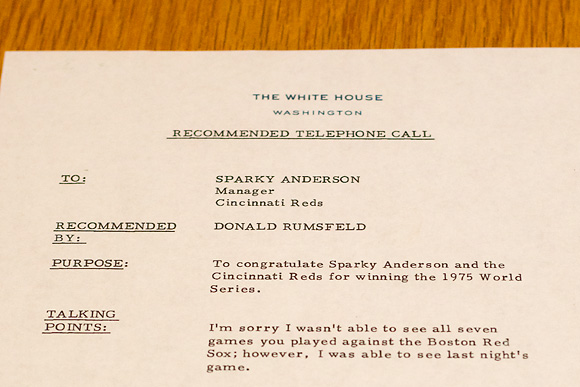 THE WHITE HOUSE
WASHINGTON
RECOMMENDED TELEPHONE CALL
TO: SPARKY ANDERSON
Manager
Cincinnati Reds
RECOMMENDED DONALD RUMSFELD
BY:
PURPOSE: To congratulate Sparky Anderson and the
Cincinnati Reds for winning the 1975 World
Series.
TALKING
POINTS: I'm sorry I wasn't able to see all seven
games you played against the Boston Red
Sox; however, I was able to see last night's
game.